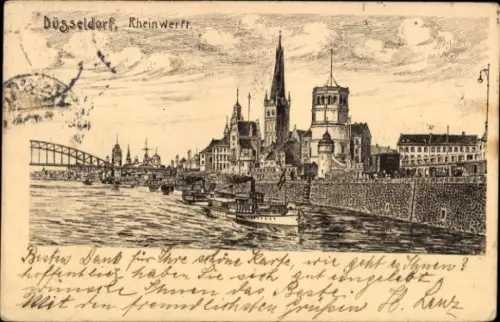 Düsseldorf, Rheinwerft.
Besten Dank für Ihre schöne Karte, wie geht es Ihnen?
hoffentlich haben Sie sich gut eingelebt
wünsche Ihnen das Beste
Mit den freundlichsten Grüßen H. Lenz